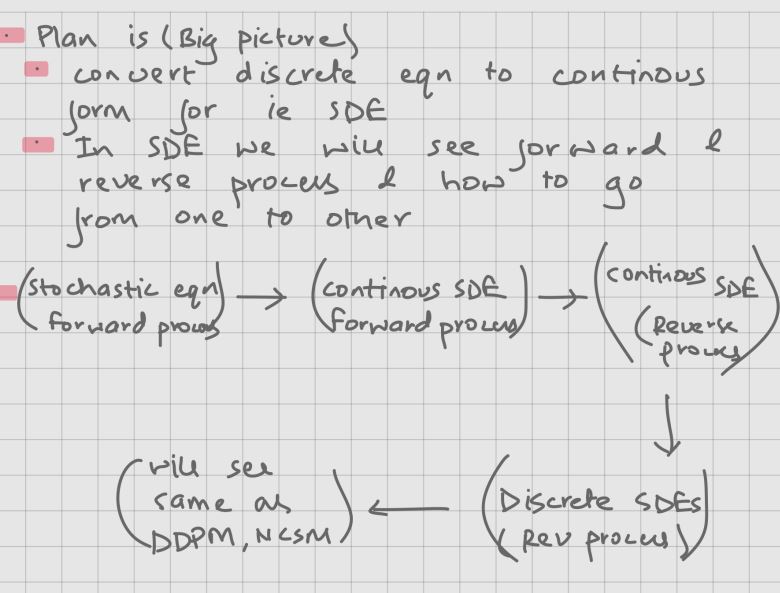 Plan is (Big picture)
convert discrete eqn to continous
form for ie SDE
In SDE we will see forward &
reverse process & how to go
from one to other
(stochastic eqn
forward process) → (continous SDE
Forward process) → (continous SDE
(Reverse
process)
↓
(Discrete SDEs
(Rev process)) ←
(will see
same as
DDPM, NCSM)